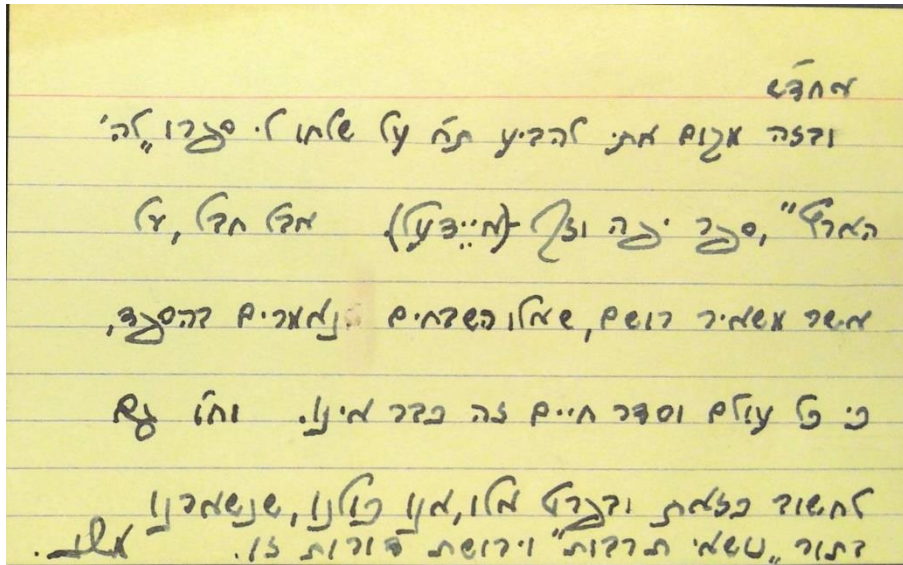 מחדש
ובזה אתי להביע תח' על שלחו לי ספרו „לה'
הארץ", ספר יפה וזך (איידעל). אבל חבל, על
אשר רושם, שאלו השבחים הנאמרים בהספד,
כי כל עולם וסדר חיים זה כבר איננו. וח"ו גם
לחשוב כזאת ובפרט אלו, אנו כולנו, שנשארנו
בתור „נושאי תרבות" וירושת דורות זו.